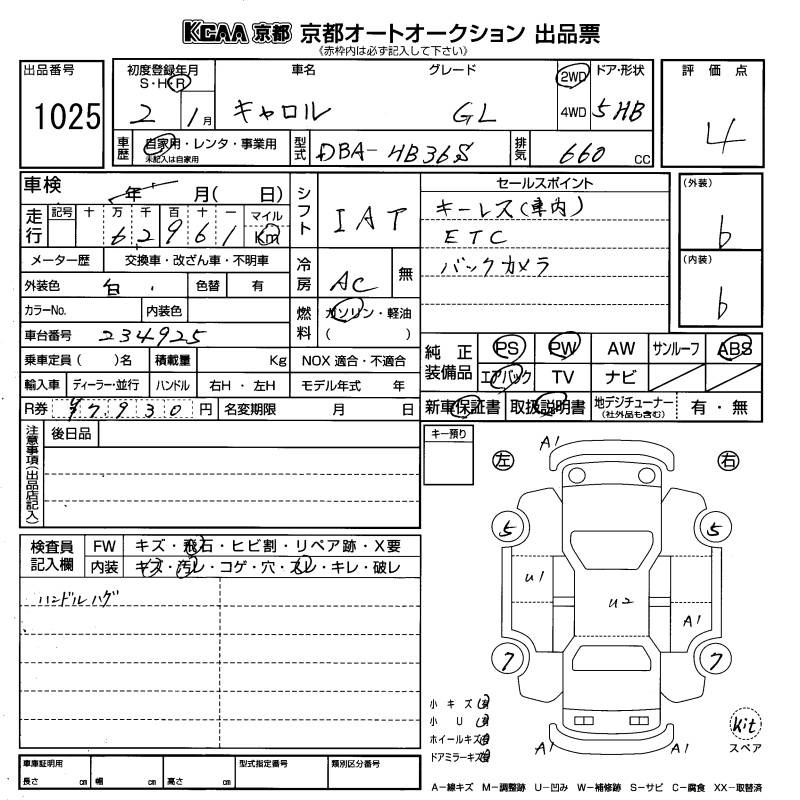 KCAA 京都 京都オートオークション 出品票
《赤枠内は必ず記入して下さい》
出品番号
1025
初度登録年月
S・H・R
2 1月
車名
キャロル
グレード
GL
2WD
4WD
ドア・形状
5HB
評価点
4
車歴
自家用・レンタ・事業用
未記入は自家用
型式
DBA-HB36S
排気
660 CC
車検
年 月( 日)
走行
記号 十 万 千 百 十 一 マイル
62961 Km
メーター歴 交換車・改ざん車・不明車
外装色 白 色替 有
カラーNo. 内装色
車台番号 234925
乗車定員( )名 積載量 Kg
輸入車 ディーラー・並行 ハンドル 右H・左H
R券 ¥7930円 名変期限 月 日
シフト
IAT
冷房
AC 無
燃料
ガソリン・軽油
( )
NOX 適合・不適合
モデル年式 年
セールスポイント
キーレス(車内)
ETC
バックカメラ
(外装)
b
(内装)
b
純正装備品
PS PW AW サンルーフ ABS
エアバック TV ナビ
新車保証書 取扱説明書 地デジチューナー (社外品も含む) 有・無
注意事項(出品店記入)
後日品
キー預り
検査員記入欄
FW キズ・飛石・ヒビ割・リペア跡・X要
内装 キズ・汚レ・コゲ・穴・スレ・キレ・破レ
ハンドルハゲ
A1
左 右
5 5
U1
U2
A1
7 7
A1 A1
小キズ有
小U有
ホイールキズ有
ドアミラーキズ有
Kit
スペア
車庫証明用
長さ cm 幅 cm 高さ cm
型式指定番号
類別区分番号
A-線キズ M-調整跡 U-凹み W-補修跡 S-サビ C-腐食 XX-取替済